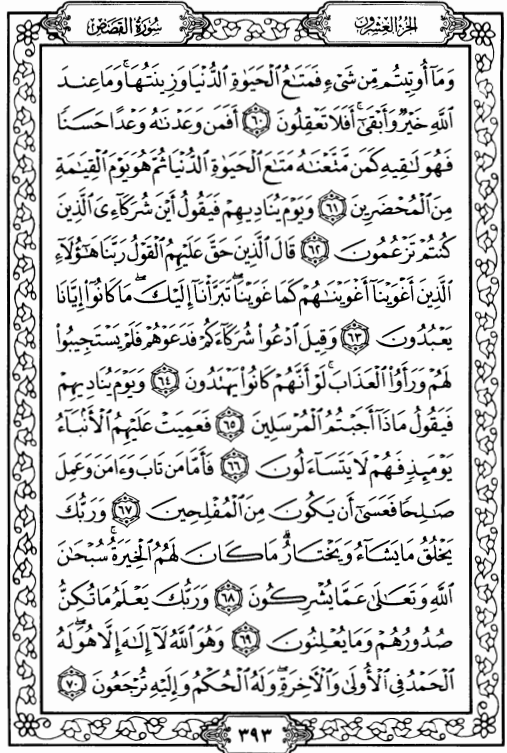 الجزء العشرون
سورة القصص
وَمَا أُوتِيتُم مِّن شَيْءٍ فَمَتَاعُ الْحَيَوٰةِ الدُّنْيَا وَزِينَتُهَا ۚ وَمَا عِندَ
اللَّهِ خَيْرٌ وَأَبْقَىٰٓ ۚ أَفَلَا تَعْقِلُونَ ٦٠ أَفَمَن وَعَدْنَٰهُ وَعْدًا حَسَنًا
فَهُوَ لَٰقِيهِ كَمَن مَّتَّعْنَٰهُ مَتَٰعَ الْحَيَوٰةِ الدُّنْيَا ثُمَّ هُوَ يَوْمَ الْقِيَٰمَةِ
مِنَ الْمُحْضَرِينَ ٦١ وَيَوْمَ يُنَادِيهِمْ فَيَقُولُ أَيْنَ شُرَكَآءِىَ الَّذِينَ
كُنتُمْ تَزْعُمُونَ ٦٢ قَالَ الَّذِينَ حَقَّ عَلَيْهِمُ الْقَوْلُ رَبَّنَا هَٰٓؤُلَآءِ
الَّذِينَ أَغْوَيْنَآ أَغْوَيْنَٰهُمْ كَمَا غَوَيْنَا ۖ تَبَرَّأْنَآ إِلَيْكَ ۖ مَا كَانُوٓا۟ إِيَّانَا
يَعْبُدُونَ ٦٣ وَقِيلَ ادْعُوا۟ شُرَكَآءَكُمْ فَدَعَوْهُمْ فَلَمْ يَسْتَجِيبُوا۟
لَهُمْ وَرَأَوُا۟ الْعَذَابَ ۚ لَوْ أَنَّهُمْ كَانُوا۟ يَهْتَدُونَ ٦٤ وَيَوْمَ يُنَادِيهِمْ
فَيَقُولُ مَاذَآ أَجَبْتُمُ الْمُرْسَلِينَ ٦٥ فَعَمِيَتْ عَلَيْهِمُ الْأَنۢبَآءُ
يَوْمَئِذٍ فَهُمْ لَا يَتَسَآءَلُونَ ٦٦ فَأَمَّا مَن تَابَ وَءَامَنَ وَعَمِلَ
صَٰلِحًا فَعَسَىٰٓ أَن يَكُونَ مِنَ الْمُفْلِحِينَ ٦٧ وَرَبُّكَ
يَخْلُقُ مَا يَشَآءُ وَيَخْتَارُ ۗ مَا كَانَ لَهُمُ الْخِيَرَةُ ۚ سُبْحَٰنَ
اللَّهِ وَتَعَٰلَىٰ عَمَّا يُشْرِكُونَ ٦٨ وَرَبُّكَ يَعْلَمُ مَا تُكِنُّ
صُدُورُهُمْ وَمَا يُعْلِنُونَ ٦٩ وَهُوَ اللَّهُ لَآ إِلَٰهَ إِلَّا هُوَ ۖ لَهُ
الْحَمْدُ فِى الْأُولَىٰ وَالْءَاخِرَةِ ۖ وَلَهُ الْحُكْمُ وَإِلَيْهِ تُرْجَعُونَ ٧٠
٣٩٣